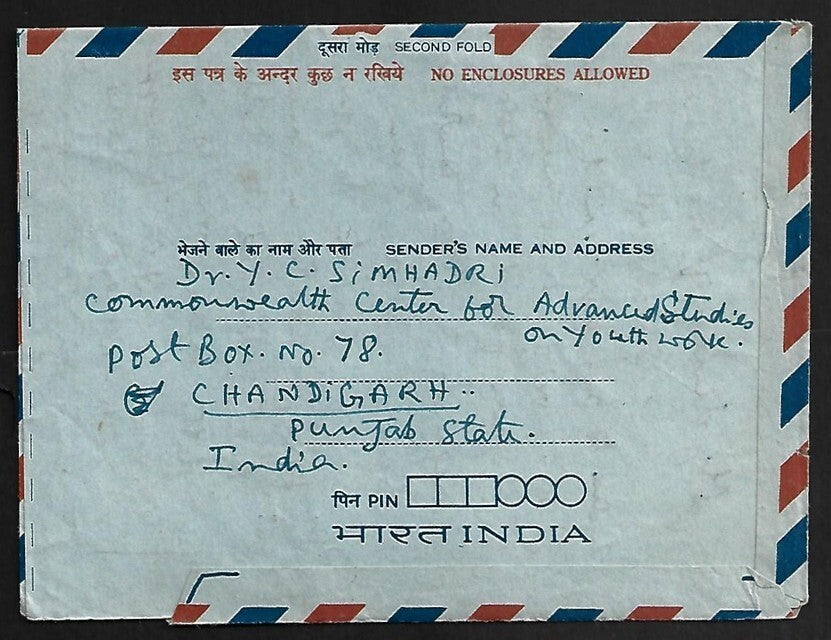 दूसरा मोड़ SECOND FOLD
इस पत्र के अन्दर कुछ न रखिये NO ENCLOSURES ALLOWED
भेजने वाले का नाम और पता SENDER'S NAME AND ADDRESS
Dr. Y. C. SiMHADRi
Commonwealth Center for Advanced Studies
on Youth work.
Post Box. No. 78.
CHANDiGARH..
Punjab State.
India.
पिन PIN
भारत INDIA